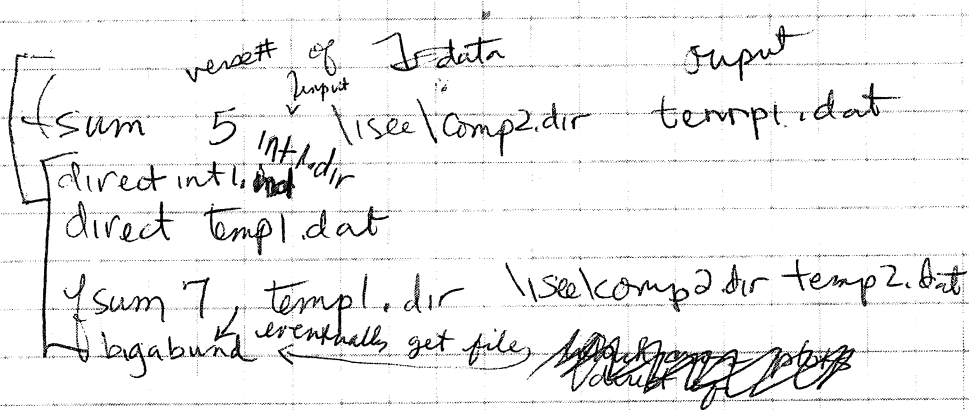 verse# of data ouput
input
fsum 5 int1.dir \isee\comp2.dir temp1.dat
direct int1.
direct temp1.dat
fsum 7, temp1.dir \isee\comp2.dir temp2.dat
bigabund eventually get files